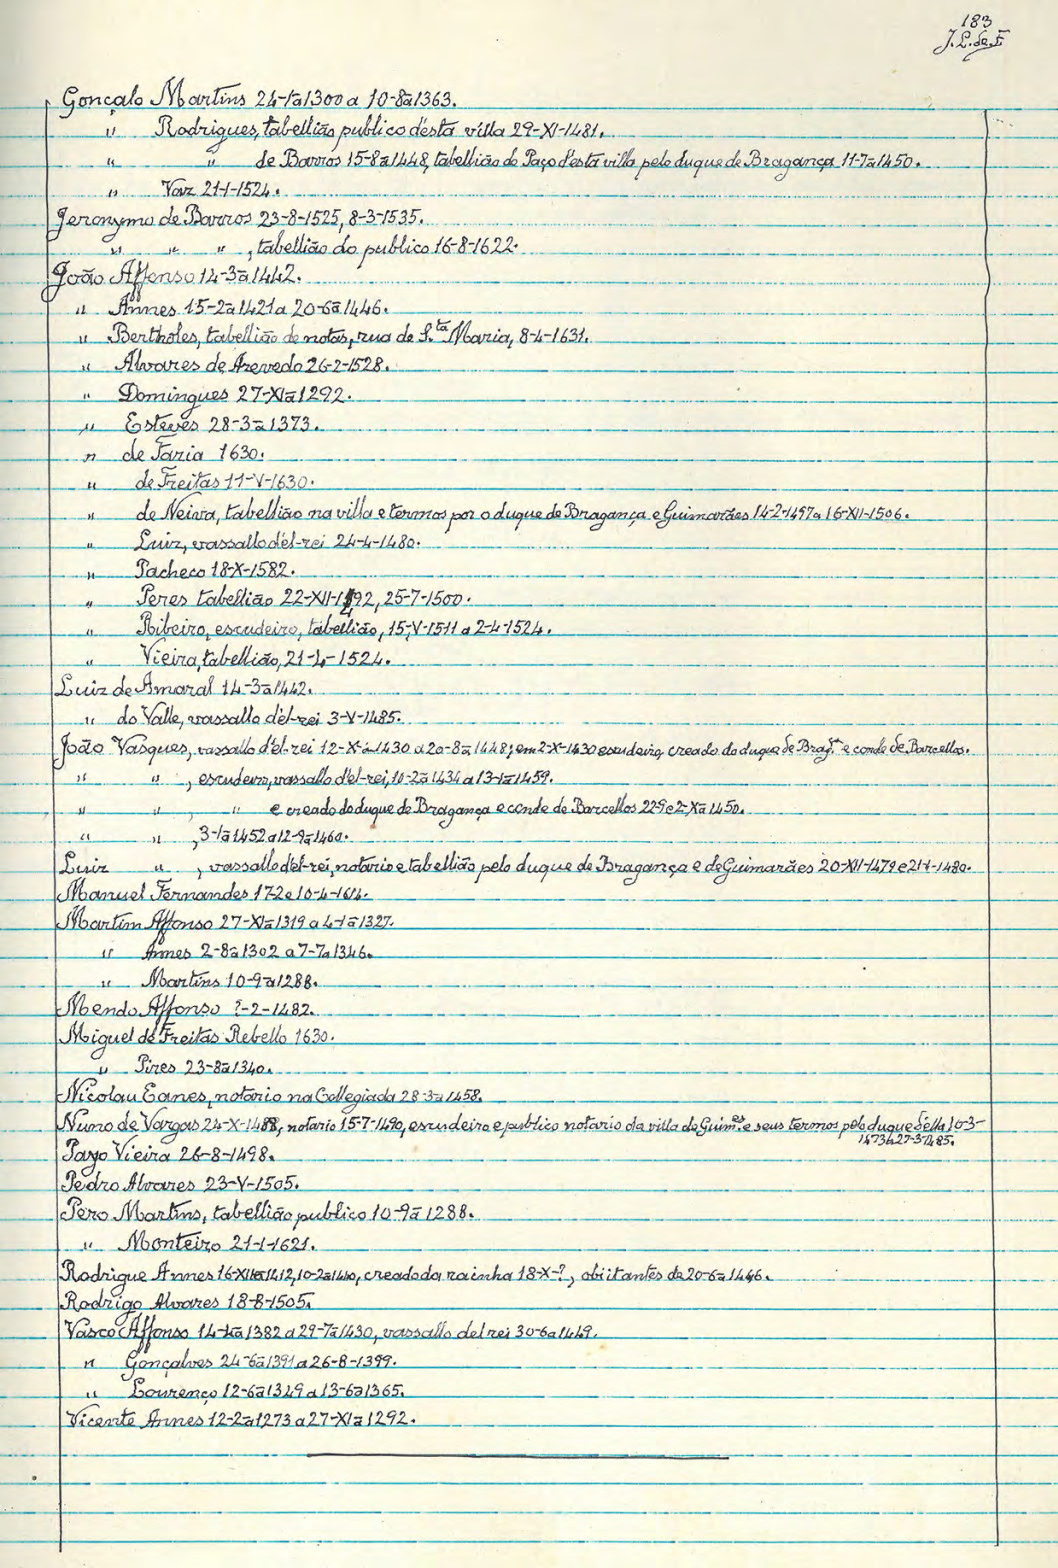 183
J. L. de F.
Gonçalo Martins 24-1ª1300 a 10-8ª1363.
" Rodrigues, tabellião publico d'esta villa 29-XI-1481.
" " de Barros 15-8ª1448, tabellião do Paço d'esta villa pelo duque de Bragança 11-7ª1450.
" Vaz 21-1-1524.
Jeronymo de Barros 23-8-1525, 8-3-1535.
" " " , tabellião do publico 16-8-1622.
João Affonso 14-3ª1442.
" Annes 15-2ª1421 a 20-6ª1446.
" Bertholes, tabellião de notas, rua de S.ta Maria, 8-4-1631.
" Alvares de Azevedo 26-2-1528.
" Domingues 27-XIª1292.
" Esteves 28-3ª1373.
" de Faria 1630.
" de Freitas 11-V-1630.
" de Neiva, tabellião na villa e termos por o duque de Bragança e Guimarães 14-2-1497 a 16-XII-1506.
" Luiz, vassallo d'el-rei 24-4-1480.
" Pacheco 18-X-1582.
" Peres tabellião 22-XII-1492, 25-7-1500.
" Ribeiro, escudeiro, tabellião, 15-V-1511 a 2-4-1524.
" Vieira, tabellião, 21-4-1524.
Luiz de Amaral 14-3ª1442.
" do Valle, vassallo d'el-rei 3-V-1485.
João Vasques, vassallo d'el-rei 12-X-ª1430 a 20-8ª1448; em 2-X-1430 escudeiro, creado do duque de Brag.ª e conde de Barcellos.
" " , escudeiro, vassallo d'el-rei, 10-2ª1434 a 13-1ª1459.
" " , " e creado do duque de Bragança e conde de Barcellos 22-9 e 2-Xª1450.
" " , 3-1ª1452 a 12-9ª1460.
Luiz " , vassallo d'el-rei, notario e tabellião pelo duque de Bragança e de Guimarães 20-XII-1479 e 21-1-1480.
Manuel Fernandes 17-2 e 10-4-1614.
Martim Affonso 27-XIª1319 a 4-1ª1327.
" Annes 2-8ª1302 a 7-7ª1346.
" Martins 10-9ª1288.
Mendo Affonso ?-2-1482.
Miguel de Freitas Rebello 1630.
" Pires 23-8ª1340.
Nicolau Eanes, notario na Collegiada 28-3ª1458.
Nuno de Vargas 24-X-1488, notario 15-7-1490, escudeiro e publico notario da villa de Guim.es e seus termos pelo duque della 10-3-
1473 a 27-3-1485.
Payo Vieira 26-8-1498.
Pedro Alvares 23-V-1505.
Pero Martins, tabellião publico 10-9ª1288.
" Monteiro 21-1-1621.
Rodrigue Annes 16-XIIª1412, 10-2ª1440, creado da rainha 18-X-?, obiit antes de 20-6ª1446.
Rodrigo Alvares 18-8-1505.
Vasco Affonso 14-4ª1382 a 29-7ª1430, vassallo del rei 30-6ª1449.
" Gonçalves 24-6ª1391 a 26-8-1399.
" Lourenço 12-6ª1349 a 13-6ª1365.
Vicente Annes 12-2ª1273 a 27-XIª1292.